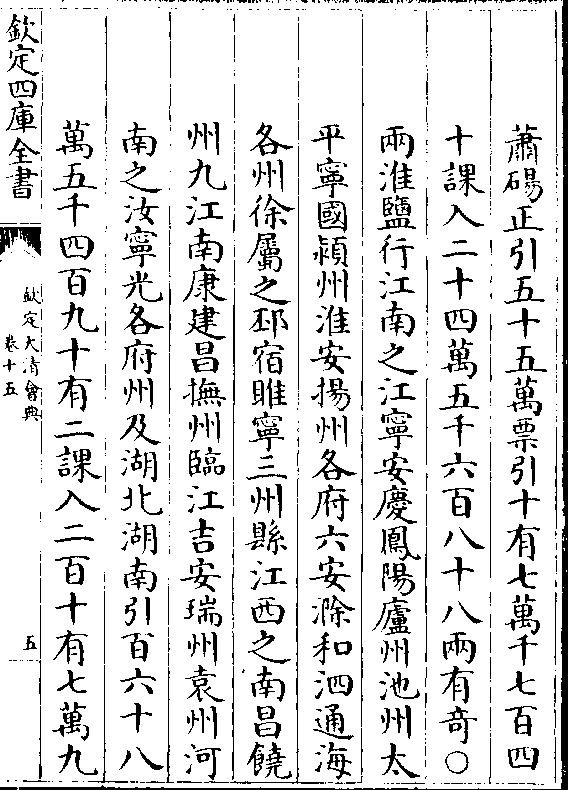 蕭碭正引五十五萬票引十有七萬千七百四
十課入二十四萬五千六百八十八兩有奇○
兩淮鹽行江南之江寧安慶鳳陽廬州池州太
平寧國潁州淮安揚州各府六安滁和泗通海
各州徐屬之邳宿睢寧三州縣江西之南昌饒
州九江南康建昌撫州臨江吉安瑞州袁州河
南之汝寧光各府州及湖北湖南引百六十八
萬五千四百九十有二課入二百十有七萬九
欽定四庫全書
欽定大清會典
卷十五
五